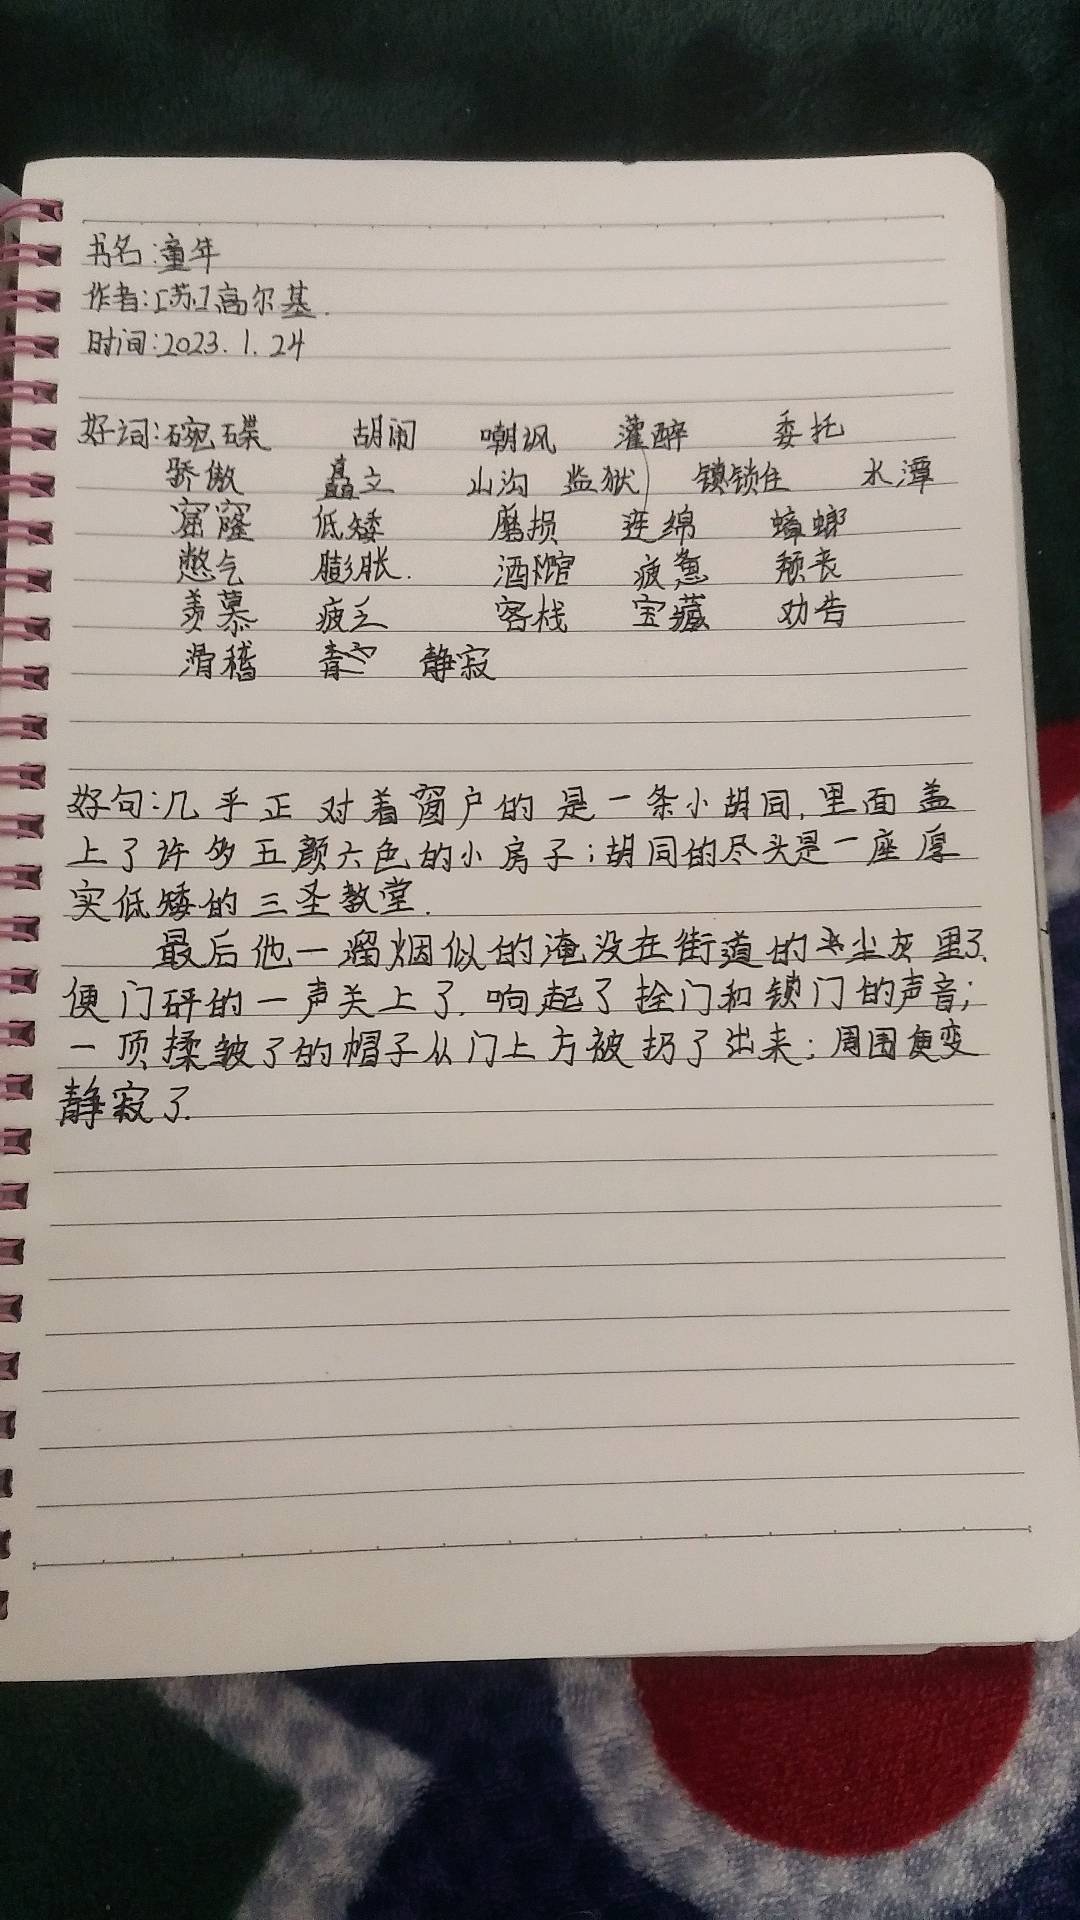 书名:童年
作者:[苏]高尔基.
时间:2023.1.24
好词:碗碟 胡闹 嘲讽 灌醉 委托
骄傲 矗立 山沟 监狱 镇锁住 水潭
窟窿 低矮 磨损 连绵 蟑螂
憋气 膨胀. 酒馆 疲惫 颓丧
羡慕 疲乏 客栈 宝藏 劝告
滑稽 静寂
好句:几乎正对着窗户的是一条小胡同,里面盖
上了许多五颜六色的小房子;胡同的尽头是一座厚
实低矮的三圣教堂.
最后他一溜烟似的淹没在街道的尘灰里了.
便门砰的一声关上了.响起了拴门和锁门的声音;
一顶揉皱了的帽子从门上方被扔了出来;周围便变
静寂了.